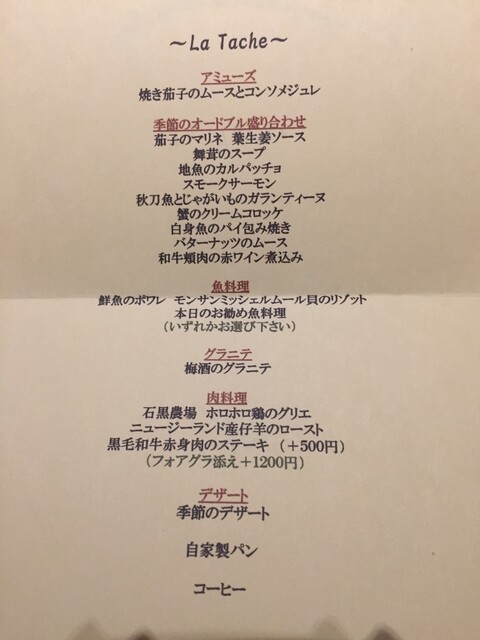 ～La Tache～
アミューズ
焼き茄子のムースとコンソメジュレ
季節のオードブル盛り合わせ
茄子のマリネ 葉生姜ソース
舞茸のスープ
地魚のカルパッチョ
スモークサーモン
秋刀魚とじゃがいものガランティーヌ
蟹のクリームコロッケ
白身魚のパイ包み焼き
バターナッツのムース
和牛頬肉の赤ワイン煮込み
魚料理
鮮魚のポワレ モンサンミッシェルムール貝のリゾット
本日のお勧め魚料理
（いずれかお選び下さい）
グラニテ
梅酒のグラニテ
肉料理
石黒農場 ホロホロ鶏のグリエ
ニュージーランド産仔羊のロースト
黒毛和牛赤身肉のステーキ （＋500円）
（フォアグラ添え＋1200円）
デザート
季節のデザート
自家製パン
コーヒー